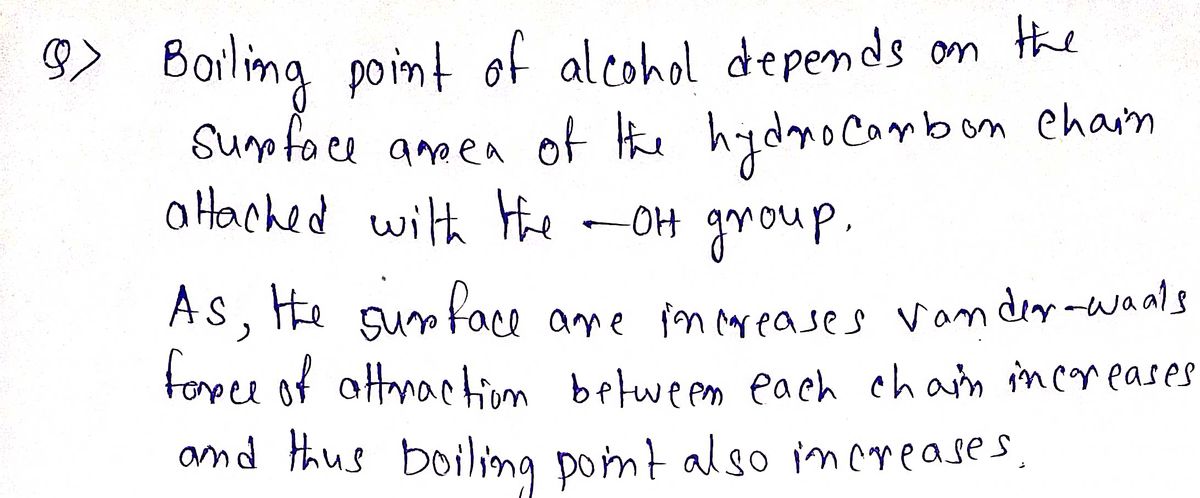 Q> Boiling point of alcohol depends on the
surface area of the hydrocarbon chain
attached with the -OH group.
As, the surface are increases vander-waals
force of attraction between each chain increases
and thus boiling point also increases.